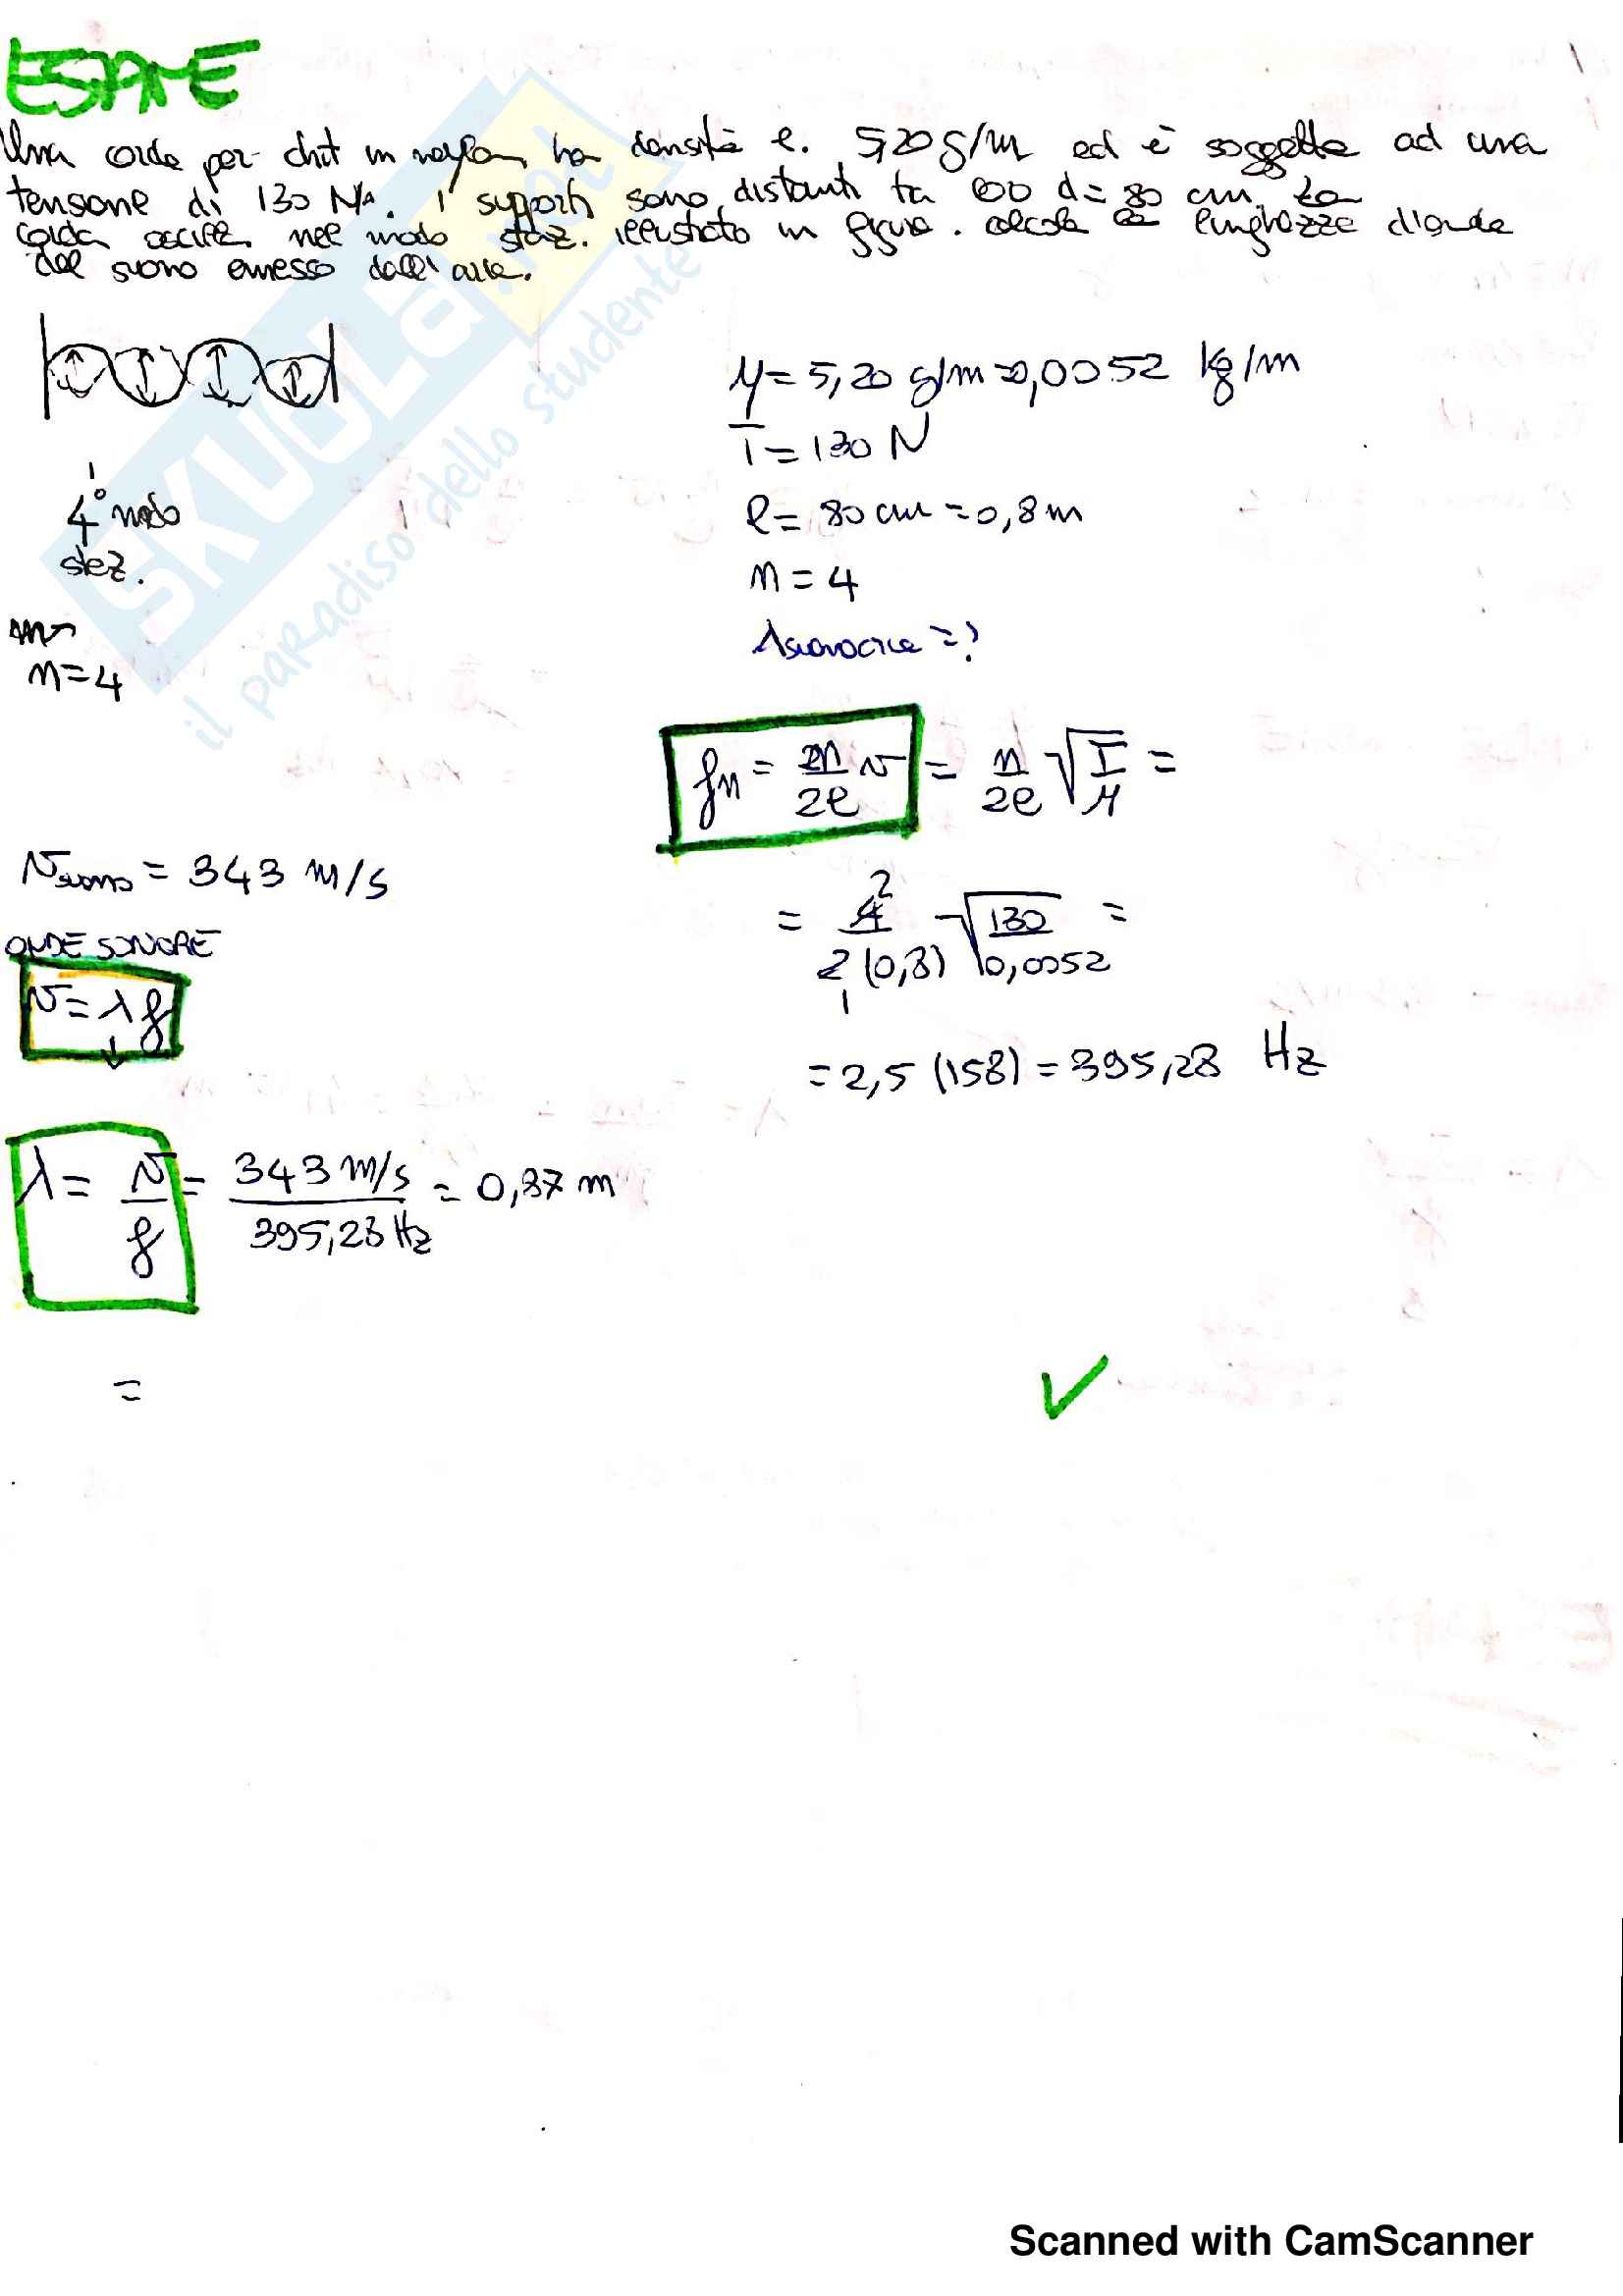 ESAME
Una corda per chit in naylon ha densità l. 5,20 g/m ed è soggetta ad una
tensione di 130 N. I supporti sono distanti tra loro d = 80 cm. La
corda oscilla nel modo staz. illustrato in figura. calcola la lunghezza d'onda
del suono emesso dall'
4° modo
staz.
n = 4
μ = 5,20 g/m = 0,0052 kg/m
T = 130 N
l = 80 cm = 0,8 m
n = 4
λsuono = ?
fn = n/2l v = n/2l √T/μ =
= 4/2(0,8) √130/0,0052 =
= 2,5 (158) = 395,28 Hz
vsuono = 343 m/s
ONDE SONORE
v = λ f
λ = v/f = 343 m/s / 395,28 Hz = 0,87 m
=
SKUOLA.net
il paradiso dello studente
Scanned with CamScanner